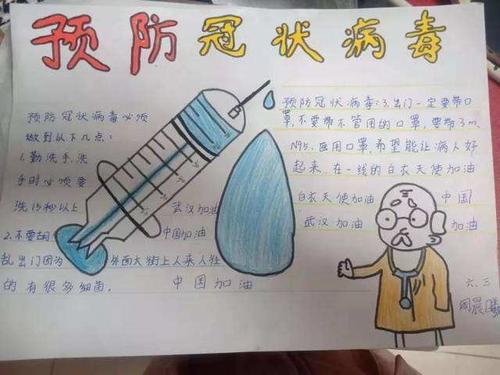 预防冠状病毒
预防冠状病毒必须
做到以下几点：
1.勤洗手,洗
手时必须要
洗15秒以上
2.不要胡
乱出门因为 外面大街上人来人往
的 有很多细菌.
武汉加油
中国加油
中国加油
预防冠状病毒:3.出门一定要带口
罩,不要带不管用的口罩,要带3m、
N95、医用口罩,希望能让病人好
起来,在一线的白衣天使加油
白衣天使加油 中国
武汉加油 加油
六、三